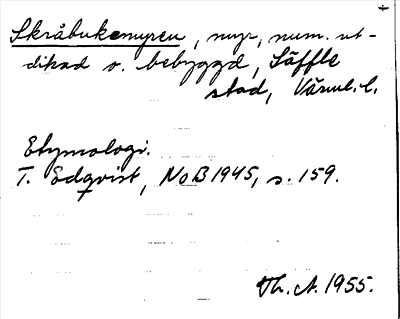 Skråbukemyren, myr, num. ut-
dikad o. bebyggd, Säffle
stad, Värml. l.
Etymologi.
T. Edqvist, NoB 1945, s. 159.
Th. A. 1955.